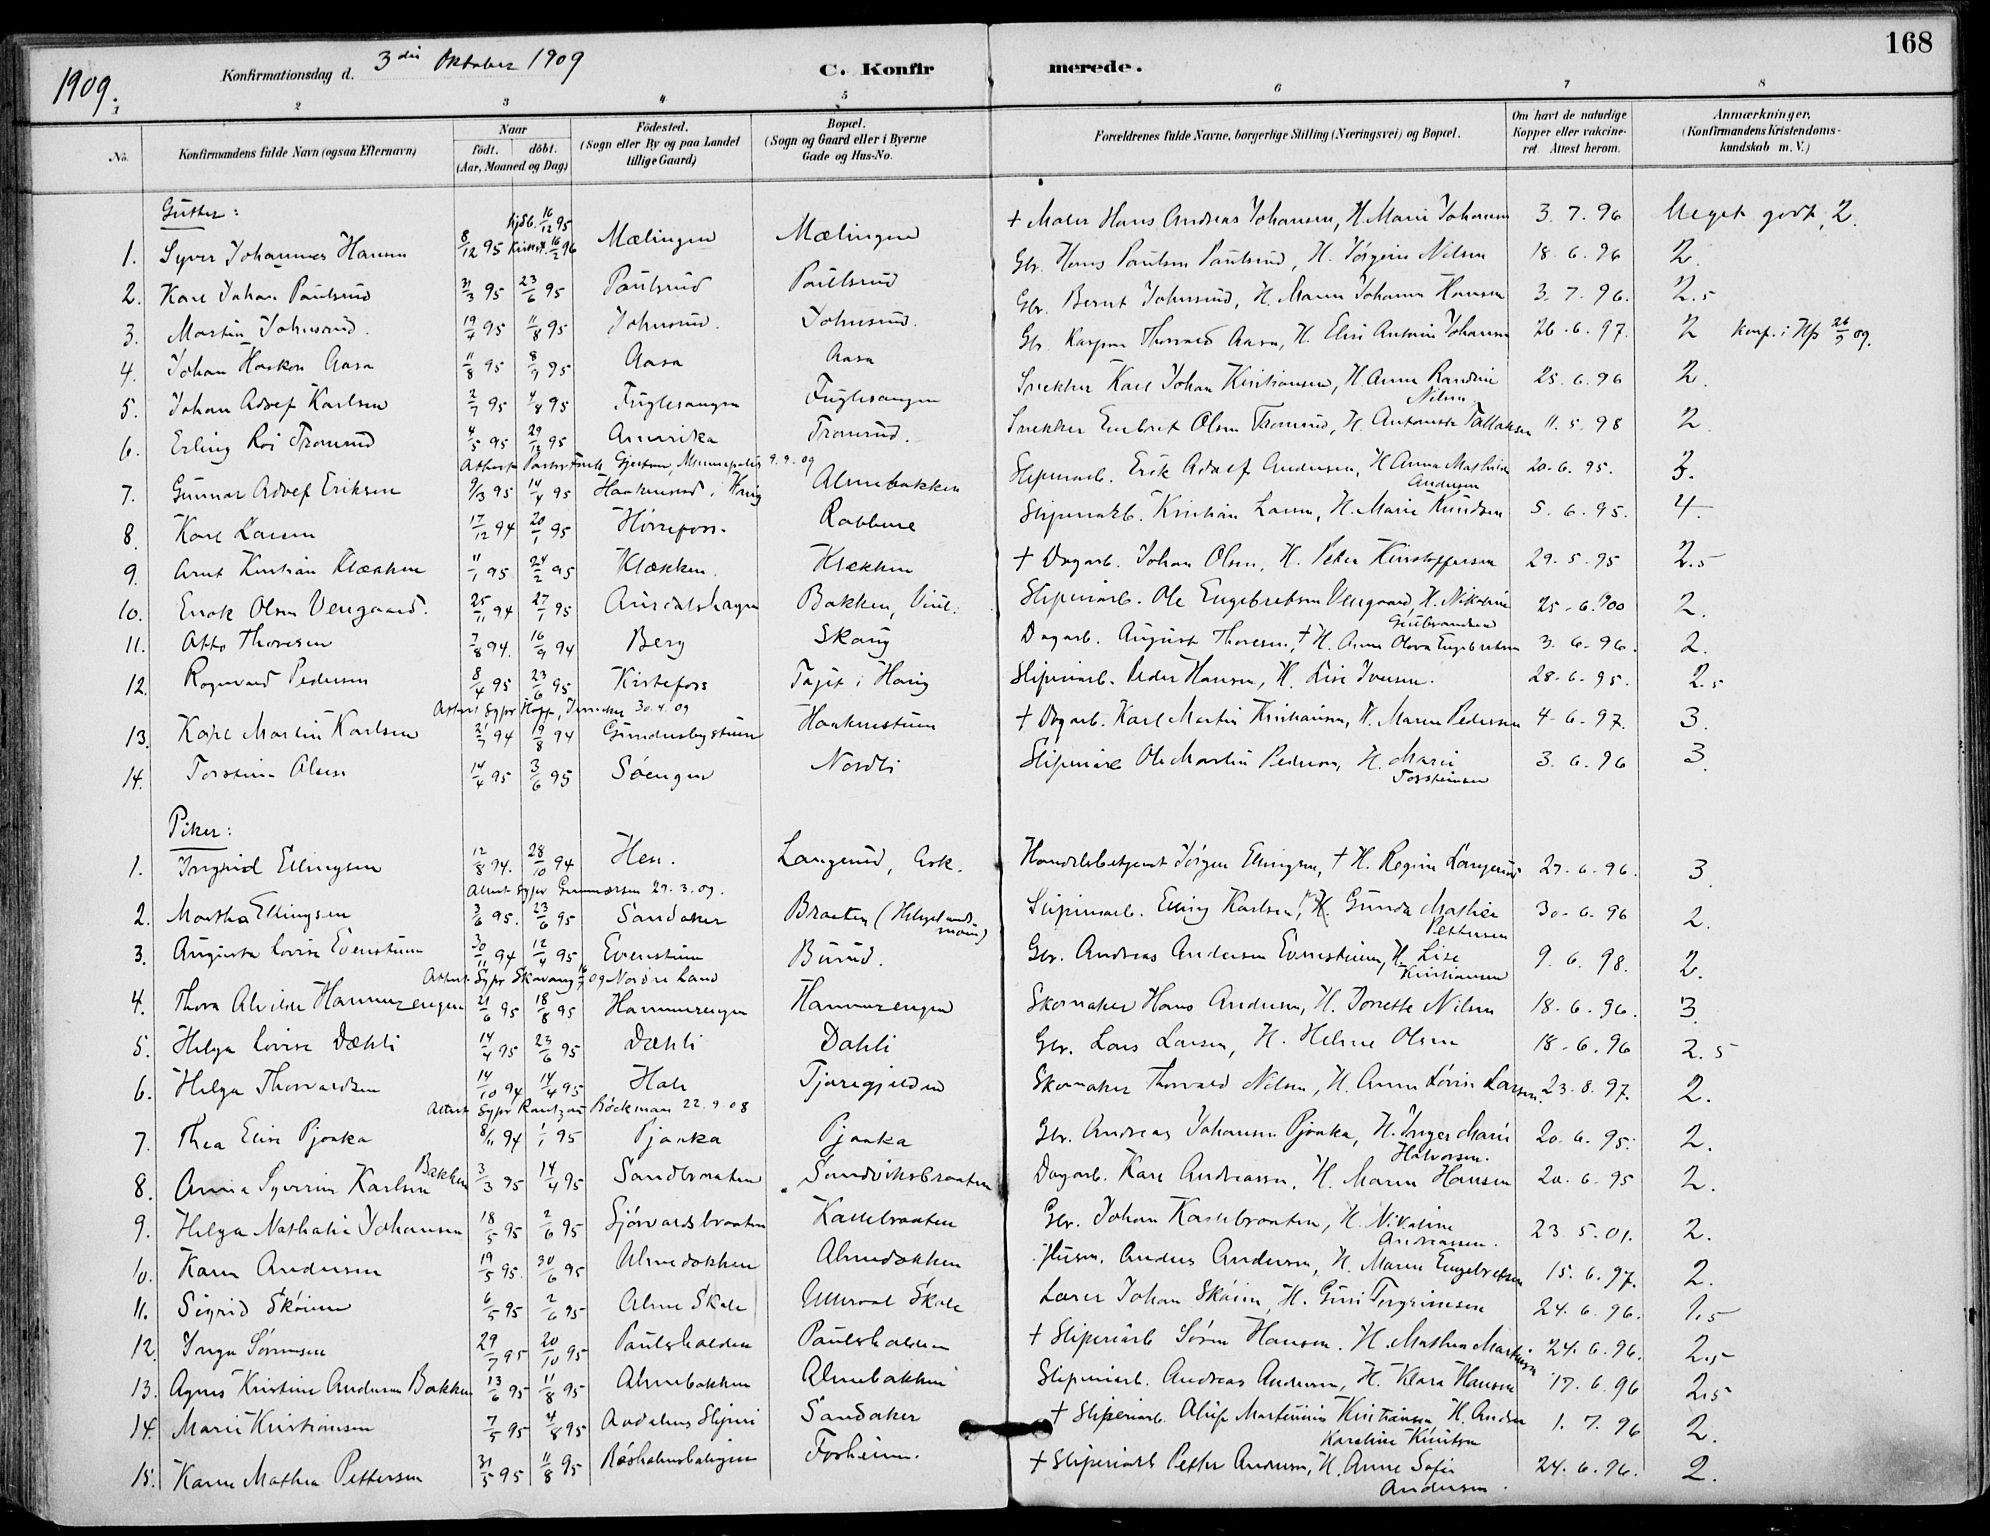 168
1909.
Konfirmationsdag d. 3die Oktober 1909
C. Konfirmerede.
1 2 3 4 5 6 7 8
No.
Konfirmandens fulde Navn (ogsaa Efternavn)
Naar
födt. döbt.
(Aar, Maaned og Dag)
Födested.
(Sogn eller By og paa Landet
tillige Gaard)
Bopæl.
(Sogn og Gaard eller i Byerne
Gade og Hus-No.
Forældrenes fulde Navne, borgerlige Stilling (Næringsvei) og Bopæl.
Om havt de naturlige
Kopper eller vakcine-
ret. Attest herom.
Anmærkninger.
(Konfirmandens Kristendoms-
kundskab m. V.)
Gutter:
hjdb. 16/12 95
1. Syver Johannes Hansen 8/12 95 16/2 96 Mælingen Mælingen + Maler Hans Andreas Johansen, H. Marie Johansen 3.7.96 Meget godt, 2.
2. Karl Johan Paulsrud 31/3 95 23/6 95 Paulsrud Paulsrud Gbr. Hans Paulsen Paulsrud, H. Jörgine Nilsen 18.6.96 2.
3. Martin Johnsrud. 19/4 95 11/8 95 Johnsrud. Johnsrud. Gbr. Bernt Johnsrud, H. Maren Johanne Hansen 3.7.96. 2.5
4. Johan Haakon Aasa 11/8 95 8/9 95 Aasa Aasa Gbr. Kaspar Thorvald Aasa, H. Elise Antonie Johansen 26.6.97. 2 Konf. i Hfs 26/9 09.
5. Johan Adolf Karlsen 2/7 95 4/8 95 Fuglesangen Fuglesangen Snekker Karl Johan Kristiansen, H. Anna Randine Nilsen 25.6.96 2.
6. Erling Roi Tronrud 4/5 95 29/12 95 Amerika Tronrud. Snekker Engbret Olsen Tronrud, H. Antonette Tallaksen 11.5.98 2.
Attest Pastor Gjestrum, Minneapolis 9.9.09
7. Gunnar Adolf Eriksen 9/3 95 14/4 95 Haakenrud i Haug Almebakken Sliperiarb. Erik Adolf Andersen, H. Anna Mathilde Andersen 20.6.95. 3.
8. Karl Larsen 17/12 94 20/1 95 Hönefoss. Rabbene Sliperiarb. Kristian Larsen, H. Marie Knudsen 5.6.95. 4.
9. Arnt Kristian Klækken 11/1 95 24/2 95 Klækken. Klækken + Dagarb. Johan Olsen, H. Petra Kristoffersen 29.5.95 2.5
10. Enok Olsen Vengaard. 25/11 94 27/1 95 Aurdalshagen Bakken, Viul. Sliperiarb. Ole Engebretsen Vengaard, H. Nikoline Gulbrandsen 25.6.900 2.
11. Otto Thoresen 7/8 94. 16/9 94 Berg Skaug Dagarb. August Thoresen, + H. Anna Olava Engebretsen 3.6.96. 2.
12. Ragnvald Pedersen 8/4 95 23/6 95 Kistefoss Taget i Haug Sliperiarb. Peder Hansen, H. Lise Iversen. 28.6.95. 2.5
Attest Sgpr Hoff, Jevnaker 30.4.09
13. Karl Martin Karlsen 21/7 94 19/8 94 Gundersbystuen Haakenstuen + Dagarb. Karl Martin Kristiansen, H. Maren Pedersen 4.6.97. 3.
14. Torstein Olsen 14/4 95 3/6 95 Söengen Nordli Sliperiarb. Ole Martin Pedersen, H. Marie Torsteinsen 3.6.96 3.
Piker:
1. Ingrid Ellingsen 12/8 94. 28/10 94 Hen. Langerud, Ask. Handelsbetjent Jörgen Ellingsen, + H. Regine Langerud 27.6.96. 3.
Attest Sgpr Gunnarsen 29.3.09.
2. Martha Ellingsen 3/6 95. 23/6 95 Sandaker Braaten (Helgelands- Sliperiarb. Elling Karlsen, H. Gunda Mathea Pettersen 30.6.96 2.
3. Augusta Lovise Evenstuen 30/11 94 12/4 95 Evenstuen Burud. Gbr. Andreas Andersen Evenstuen, H. Lise Kristiansen 9.6.98. 2.
Attest Sgpr Skavang 16/7 09 Nordre Land
4. Thora Alvilde Hammerengen 21/6 95 18/8 95 Hammerengen Hammerengen Skomaker Hans Andersen, H. Dorette Nilsen 18.6.96. 3.
5. Helga Lovise Dæhli 14/4 95 23/6 95 Dæhli Dahli Gbr. Lars Larsen, H. Helene Olsen 18.6.96 2.5
6. Helga Thorvaldsen 14/10 94 14/4 95 Hole Tjoregjelden Skomaker Thorvald Nilsen, H. Anna Lovise Larsen. 23.8.97. 2.
Attest Sgpr Rantzau Böckman 22.9.08
7. Thea Elise Pjaaka 8/11 94 1/1 95 Pjaaka Pjaaka Gbr. Andreas Johansen Pjaaka, H. Inger Marie Halvorsen. 20.6.95. 2.
8. Anna Syverine Karlsen Bakken 3/3 95 14/4 95 Sandbraaten Sandviksbraaten Dagarb. Karl Andreassen, H. Maren Hansen 20.6.95 2.
9. Helga Nathalie Johansen 18/5 95 2/6 95 Sjörvardsbraaten Kastebraaten Gbr. Johan Kastebraaten, H. Nikoline Andreassen. 23 5.01. 2.
10. Karen Andersen 19/5 95. 30/6 95 Almebakken Almebakken Husm. Anders Andersen, H. Maren Engebretsen 15.6.97. 2.
11. Sigrid Sköien 6/5 95 2/6 95 Alme Skole Ulleraal Skole Lærer Johan Sköien, H. Guri Torgrimsen 24.6.96. 1.5
12. Inga Sörensen 29/7 95 20/10 95 Paulshalden Paulshalden + Sliperiarb Sören Hansen, H. Mathea Martinsen 24.6.96. 2.5
13. Agnes Kristine Andersen Bakken 13/6 95 11/8 95 Almebakken Almebakken Sliperiarb. Andreas Andersen, H. Klara Hansen 17.6.96 2.5
14. Marie Kristiansen 7/5 95 4/8 95 Aadalens Sliperi Sandaker + Sliperiarb. Alrik Martinius Kristiansen H. Andrea Karoline Knutsen 1.7.96 2.
15. Karen Mathea Pettersen 31/5 95 11/8 95 Forheim. + Sliperiarb Petter Andersen, H. Anne Sofie Andersen. 24.6.96. 2.